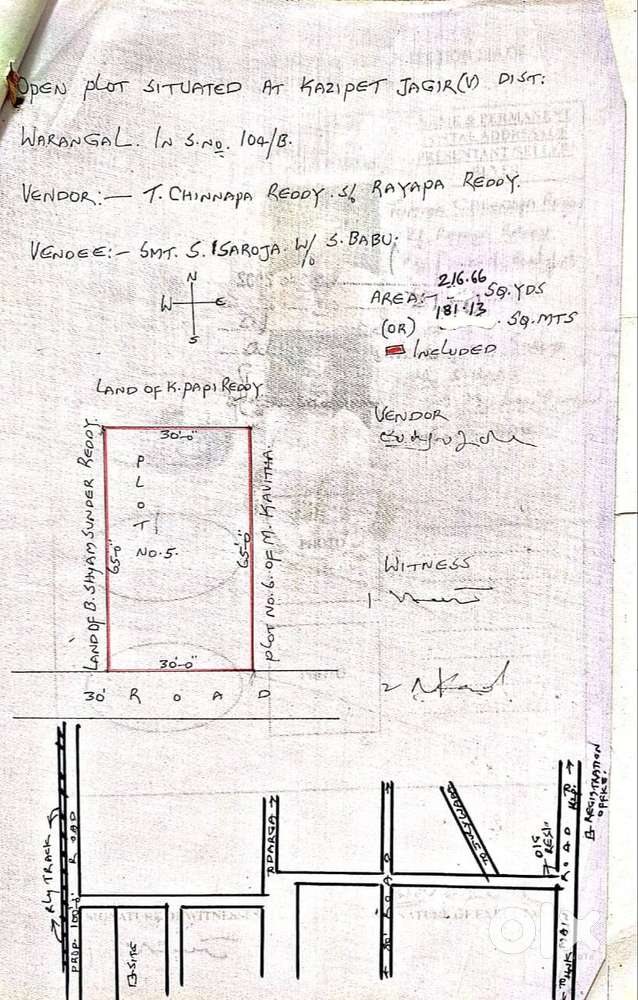 OPEN PLOT SITUATED AT KAZIPET JAGIR(V) DIST:
WARANGAL. IN S.NO. 104/B.
VENDOR:- T. CHINNAPA REDDY. S/o RAYAPA REDDY.
VENDEE:- SMT. S. SAROJA. W/o S. BABU.
N
W E
S
AREA:- 216.66 SQ.YDS
(OR) 181.13 SQ.MTS
INCLUDED
LAND OF K. PAPI REDDY
VENDOR
LAND OF B. SHYAM SUNDER REDDY.
30'-0"
PLOT
NO.5.
65'-0"
65'-0"
PLOT NO.6. OF M. KAVITHA.
30'-0"
30' ROAD
WITNESS
1.
2
RLY TRACK
PROP. 100'-0" ROAD
SITE
DARGA
80' ROAD
DIG RESI:
ROAD
MAIN
REGISTRATION OFFICE.
olx